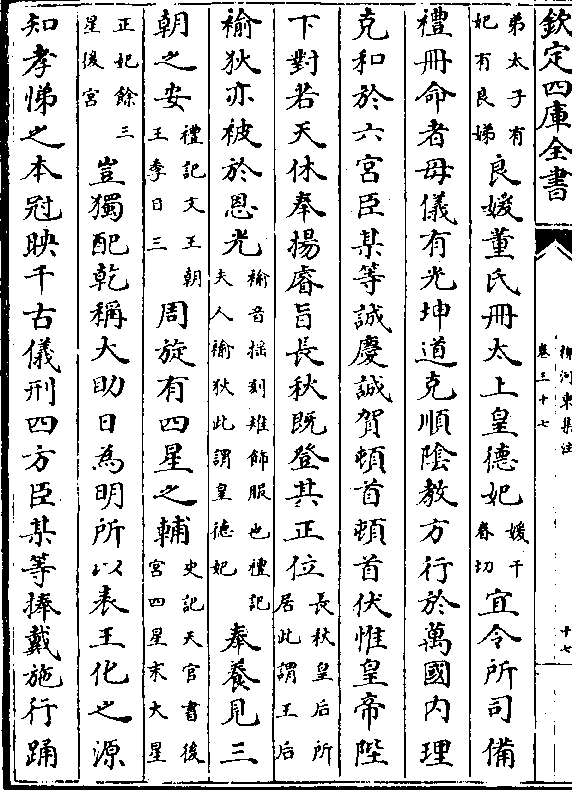 欽定四庫全書
柳河東集注
卷三十七
十七
弟太子有
妃有良娣
良媛董氏冊太上皇德妃
媛干
眷切
宜令所司備
禮冊命者母儀有光坤道克順陰教方行於萬國內理
克和於六宮臣某等誠慶誠賀頓首頓首伏惟皇帝陛
下對若天休奉揚睿旨長秋既登其正位
長秋皇后所
居此謂王后
褕狄亦被於恩光
褕音揺刻雉飾服也禮記
夫人褕狄此謂皇德妃
奉養見三
朝之安
禮記文王朝
王季日三
周旋有四星之輔
史記天官書後
宮四星末大星
正妃餘三
星後宮
豈獨配乾稱大助日為明所以表王化之源
知孝悌之本冠映千古儀刑四方臣某等捧戴施行踊